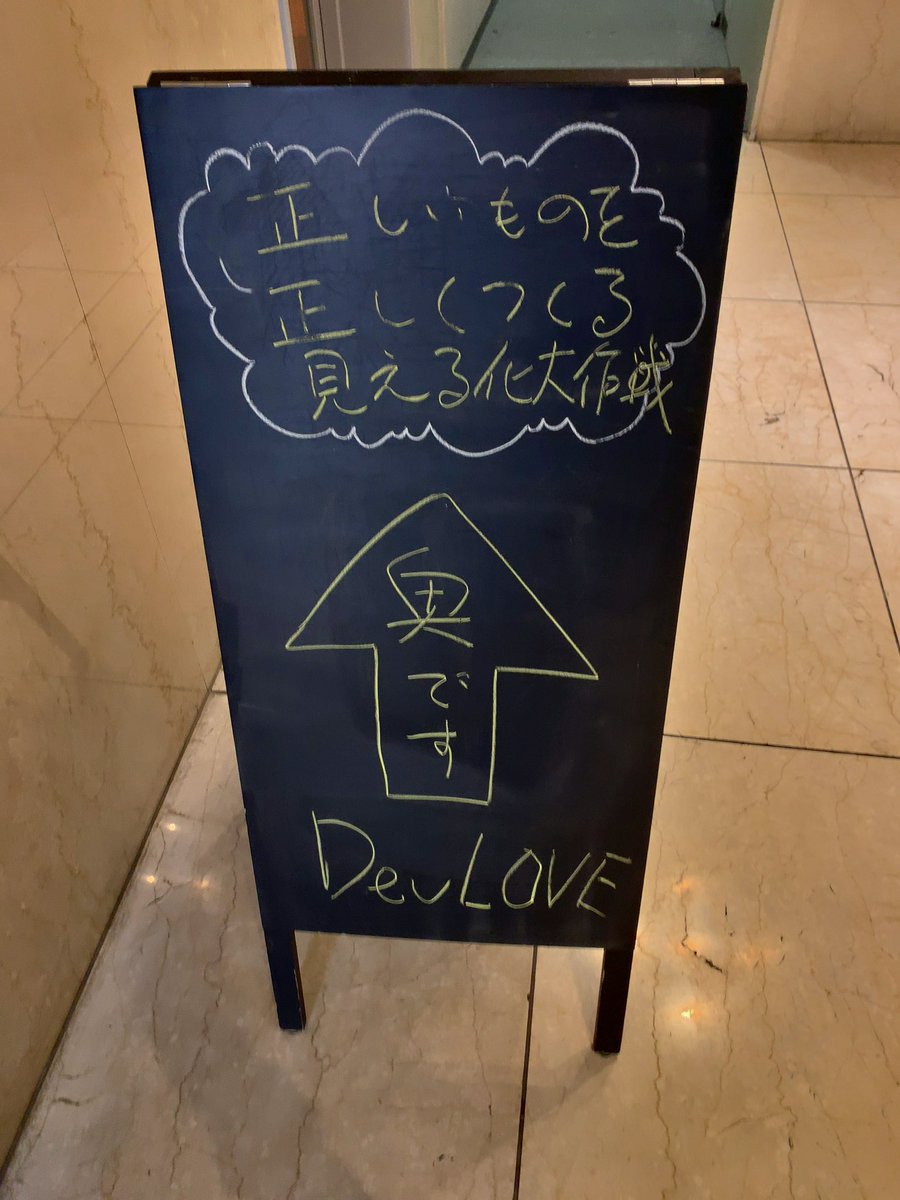 正しいものを
正しくつくる
見える化大作戦
奥です
DevLOVE